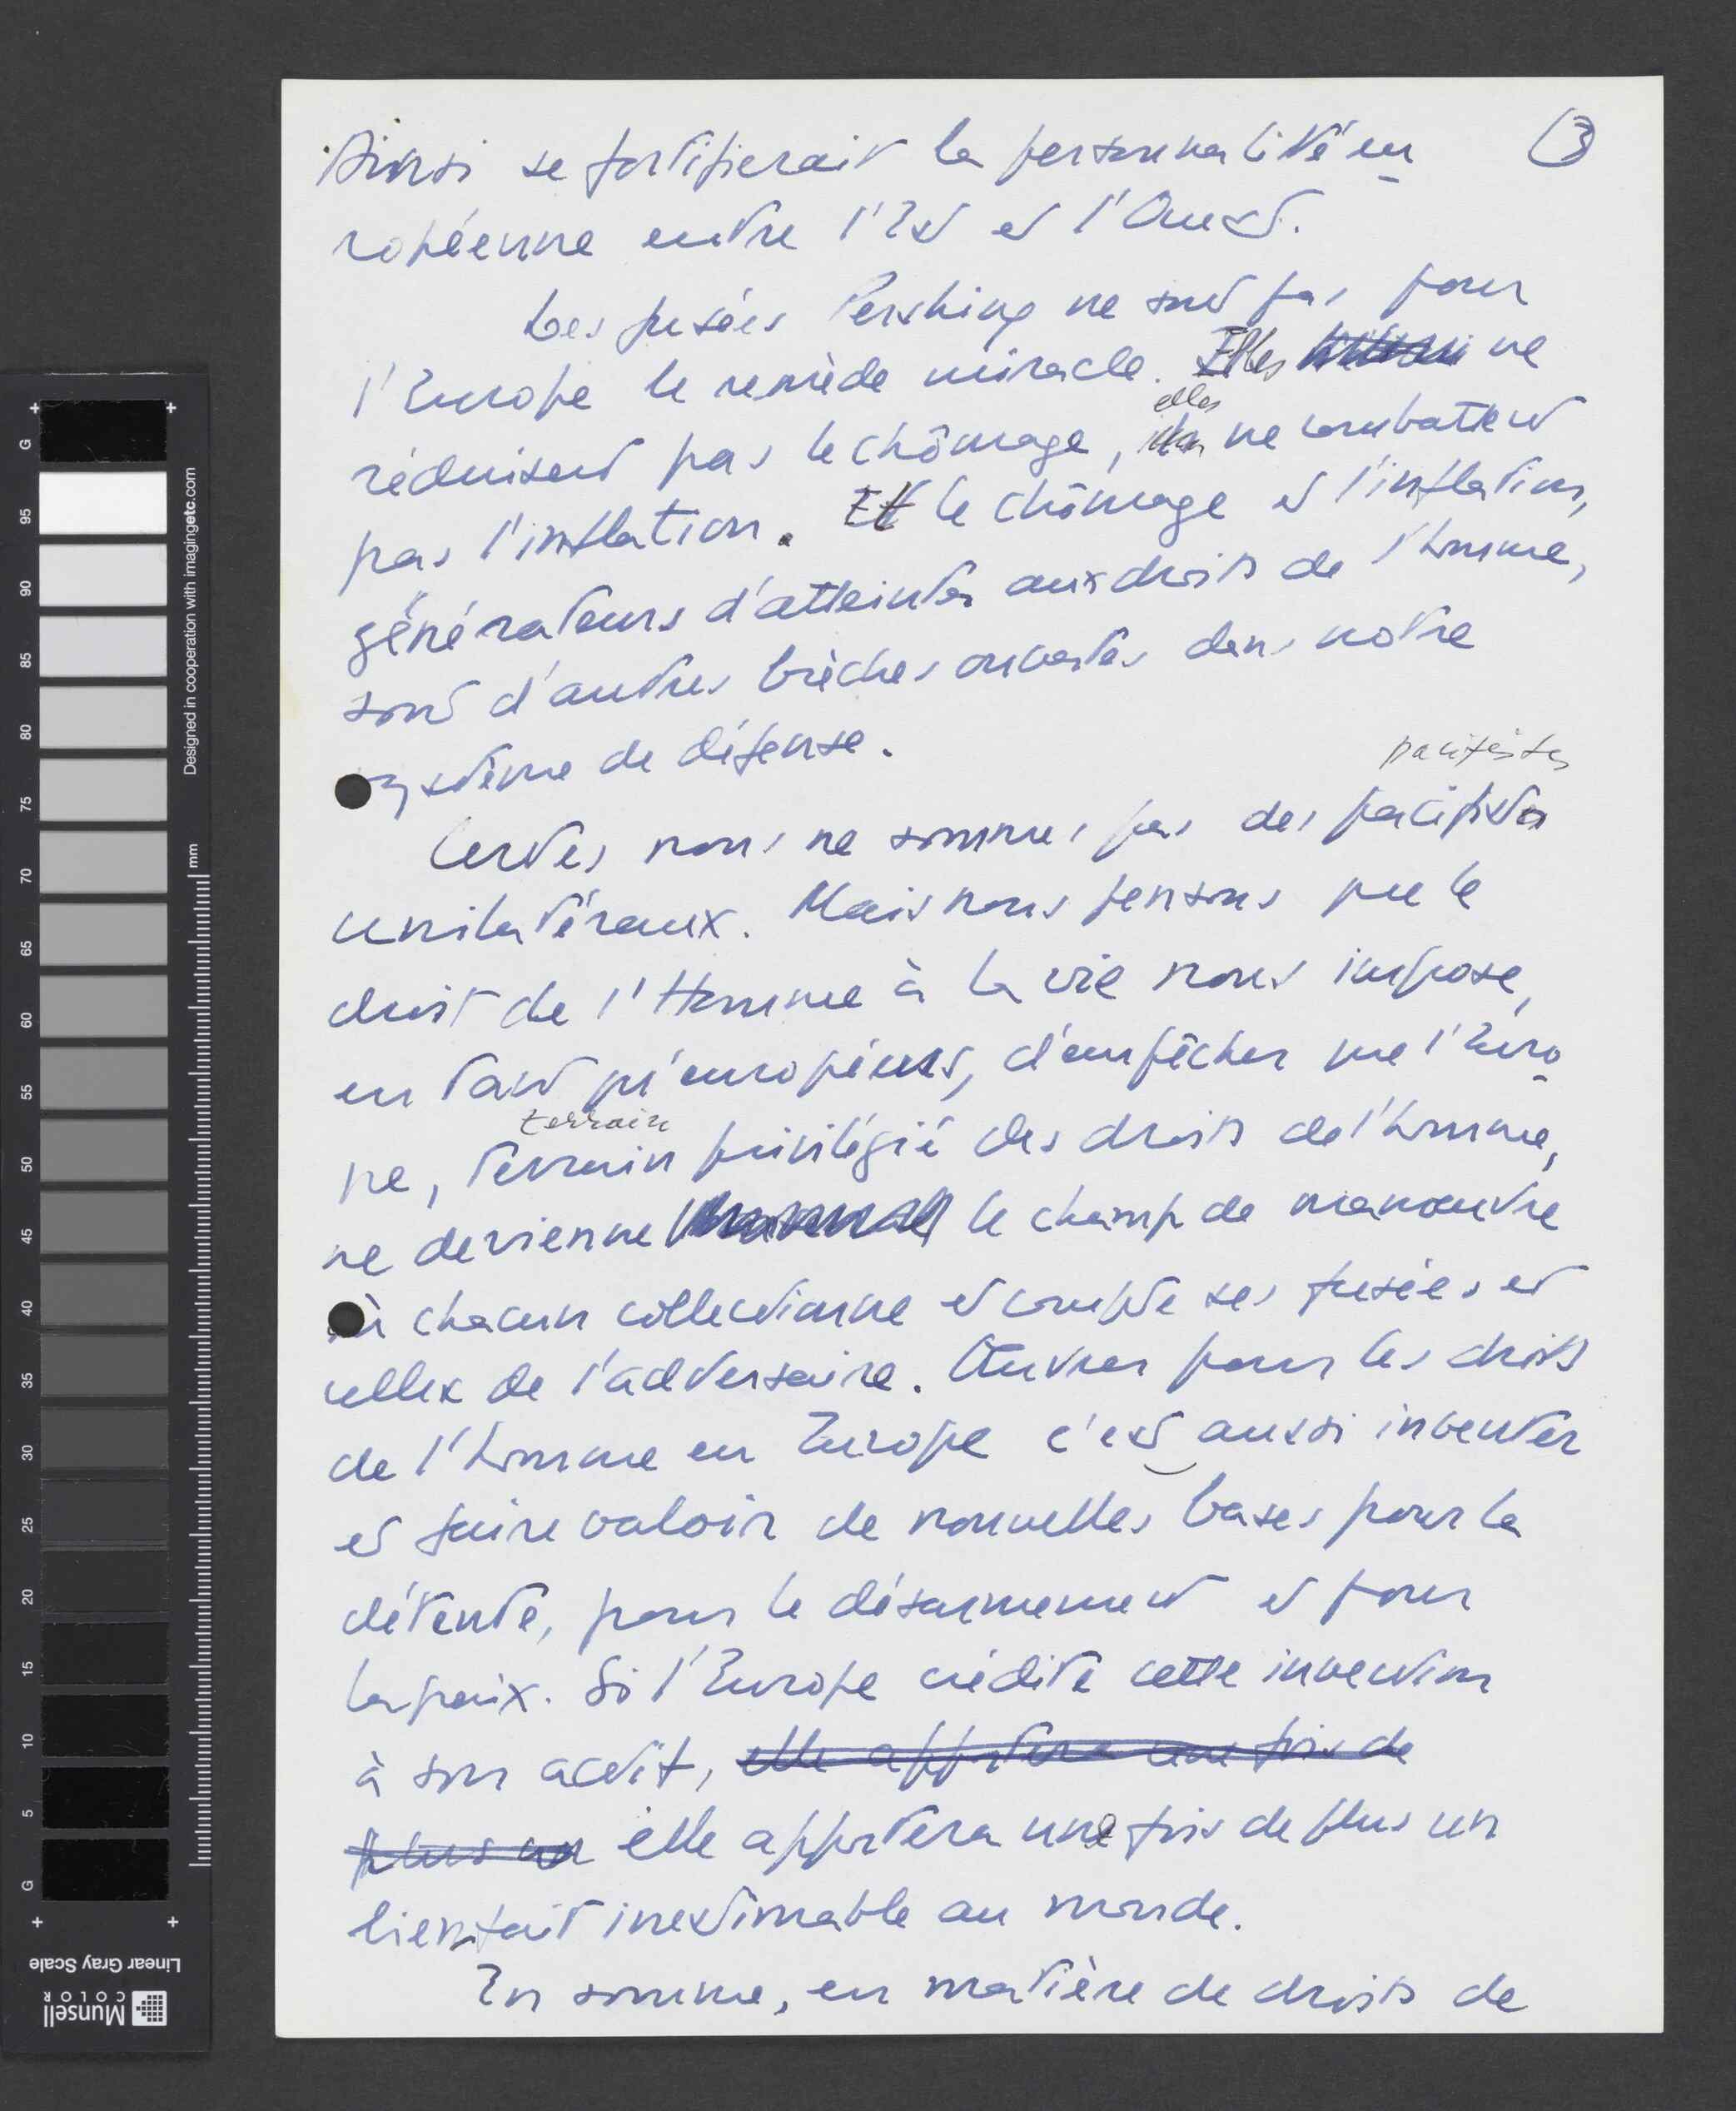 Ainsi se fortifierait la personnalité eu- 3
ropéenne entre l'Est et l'Ouest.
Les fusées Pershing ne sont pas pour
l'Europe le remède miracle. Elles ne
elles
réduisent pas le chômage, ne combattent
pas l'inflation. Et le chômage et l'inflation,
générateurs d'atteintes aux droits de l'homme,
sont d'autres brèches ouvertes dans notre
système de défense.
pacifistes
Certes nous ne sommes pas des pacifistes
unilatéraux. Mais nous pensons que le
droit de l'Homme à la vie nous impose,
en tant qu'européens, d'empêcher que l'Euro-
terrain
pe, terrain privilégié des droits de l'homme,
ne devienne le champ de manoeuvre
où chacun collectionne et compte ses fusées et
celles de l'adversaire. Œuvrer pour les droits
de l'homme en Europe c'est aussi inventer
et faire valoir de nouvelles bases pour la
détente, pour le désarmement et pour
la paix. Si l'Europe crédite cette invention
à son actif, elle apportera une fois de
plus un elle apportera une fois de plus un
bienfait inestimable au monde.
En somme, en matière de droits de
G 95 90 85 80 75 70 65 60 55 50 45 40 35 30 25 20 15 10 5 G
mm
Designed in cooperation with imagingetc.com
Linear Gray Scale
Munsell
COLOR